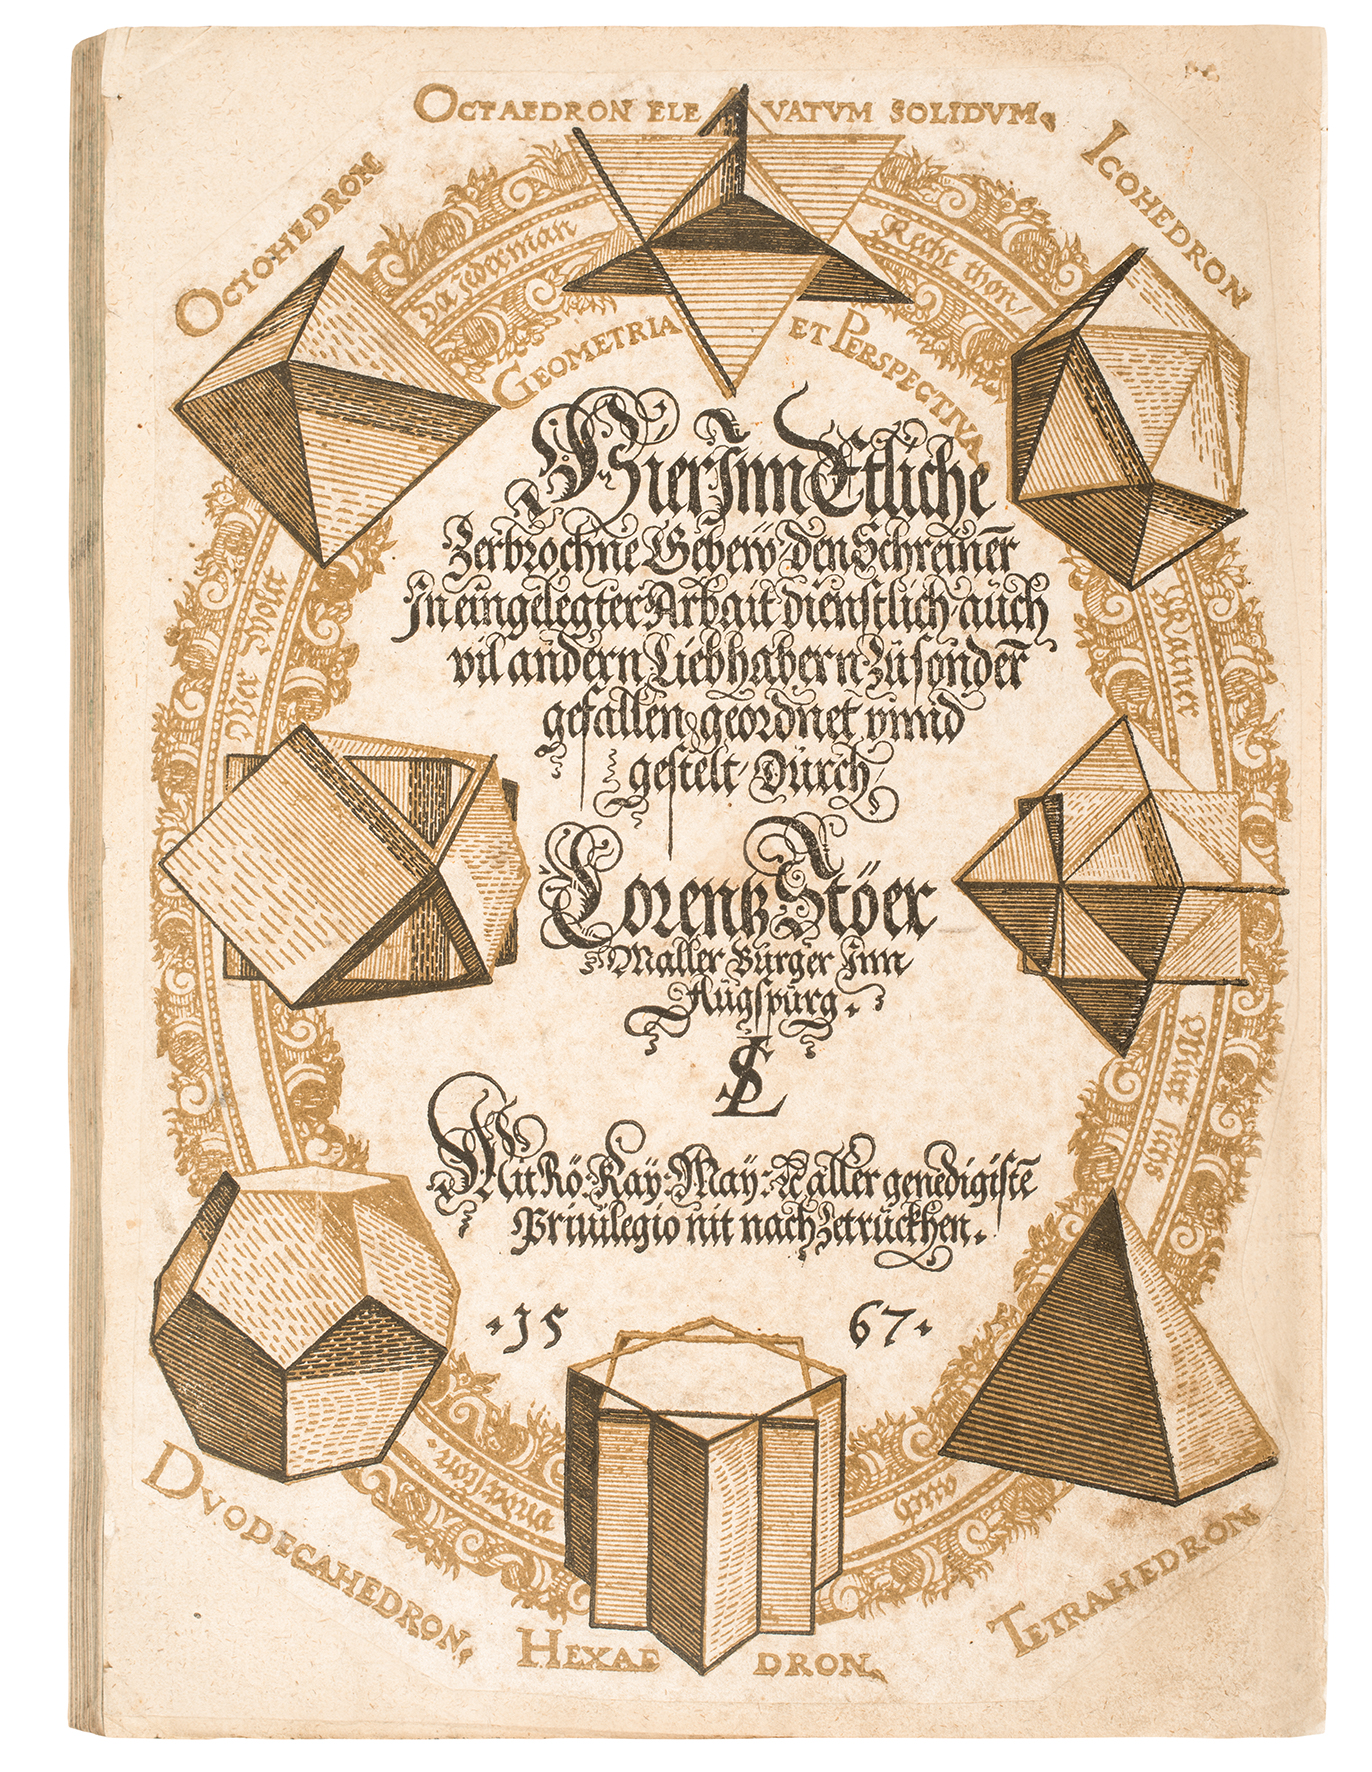 OCTAEDRON ELEVATVM SOLIDVM.
OCTOHEDRON
ICOHEDRON
Wer Wolt
Da Jederman
Recht thon
Kainer
GEOMETRIA ET PERSPECTIVA
Hier Jnn Etliche
Zerbrochne Gebew den Schreiner
Jn eingelegter Arbait dienstlich auch
vil andern Liebhabern Zu sonder
gefallen geordnet vnnd
gestelt Durch
Lorentz Stöer
Maller Burger Jnn
Augspurg.
LS
Mit Rö: Kay: May: Aller genedigistē
Priuilegio nit nach Zetruckhen.
15 67
vnd
DVODECAHEDRON.
HEXAEDRON
TETRAHEDRON